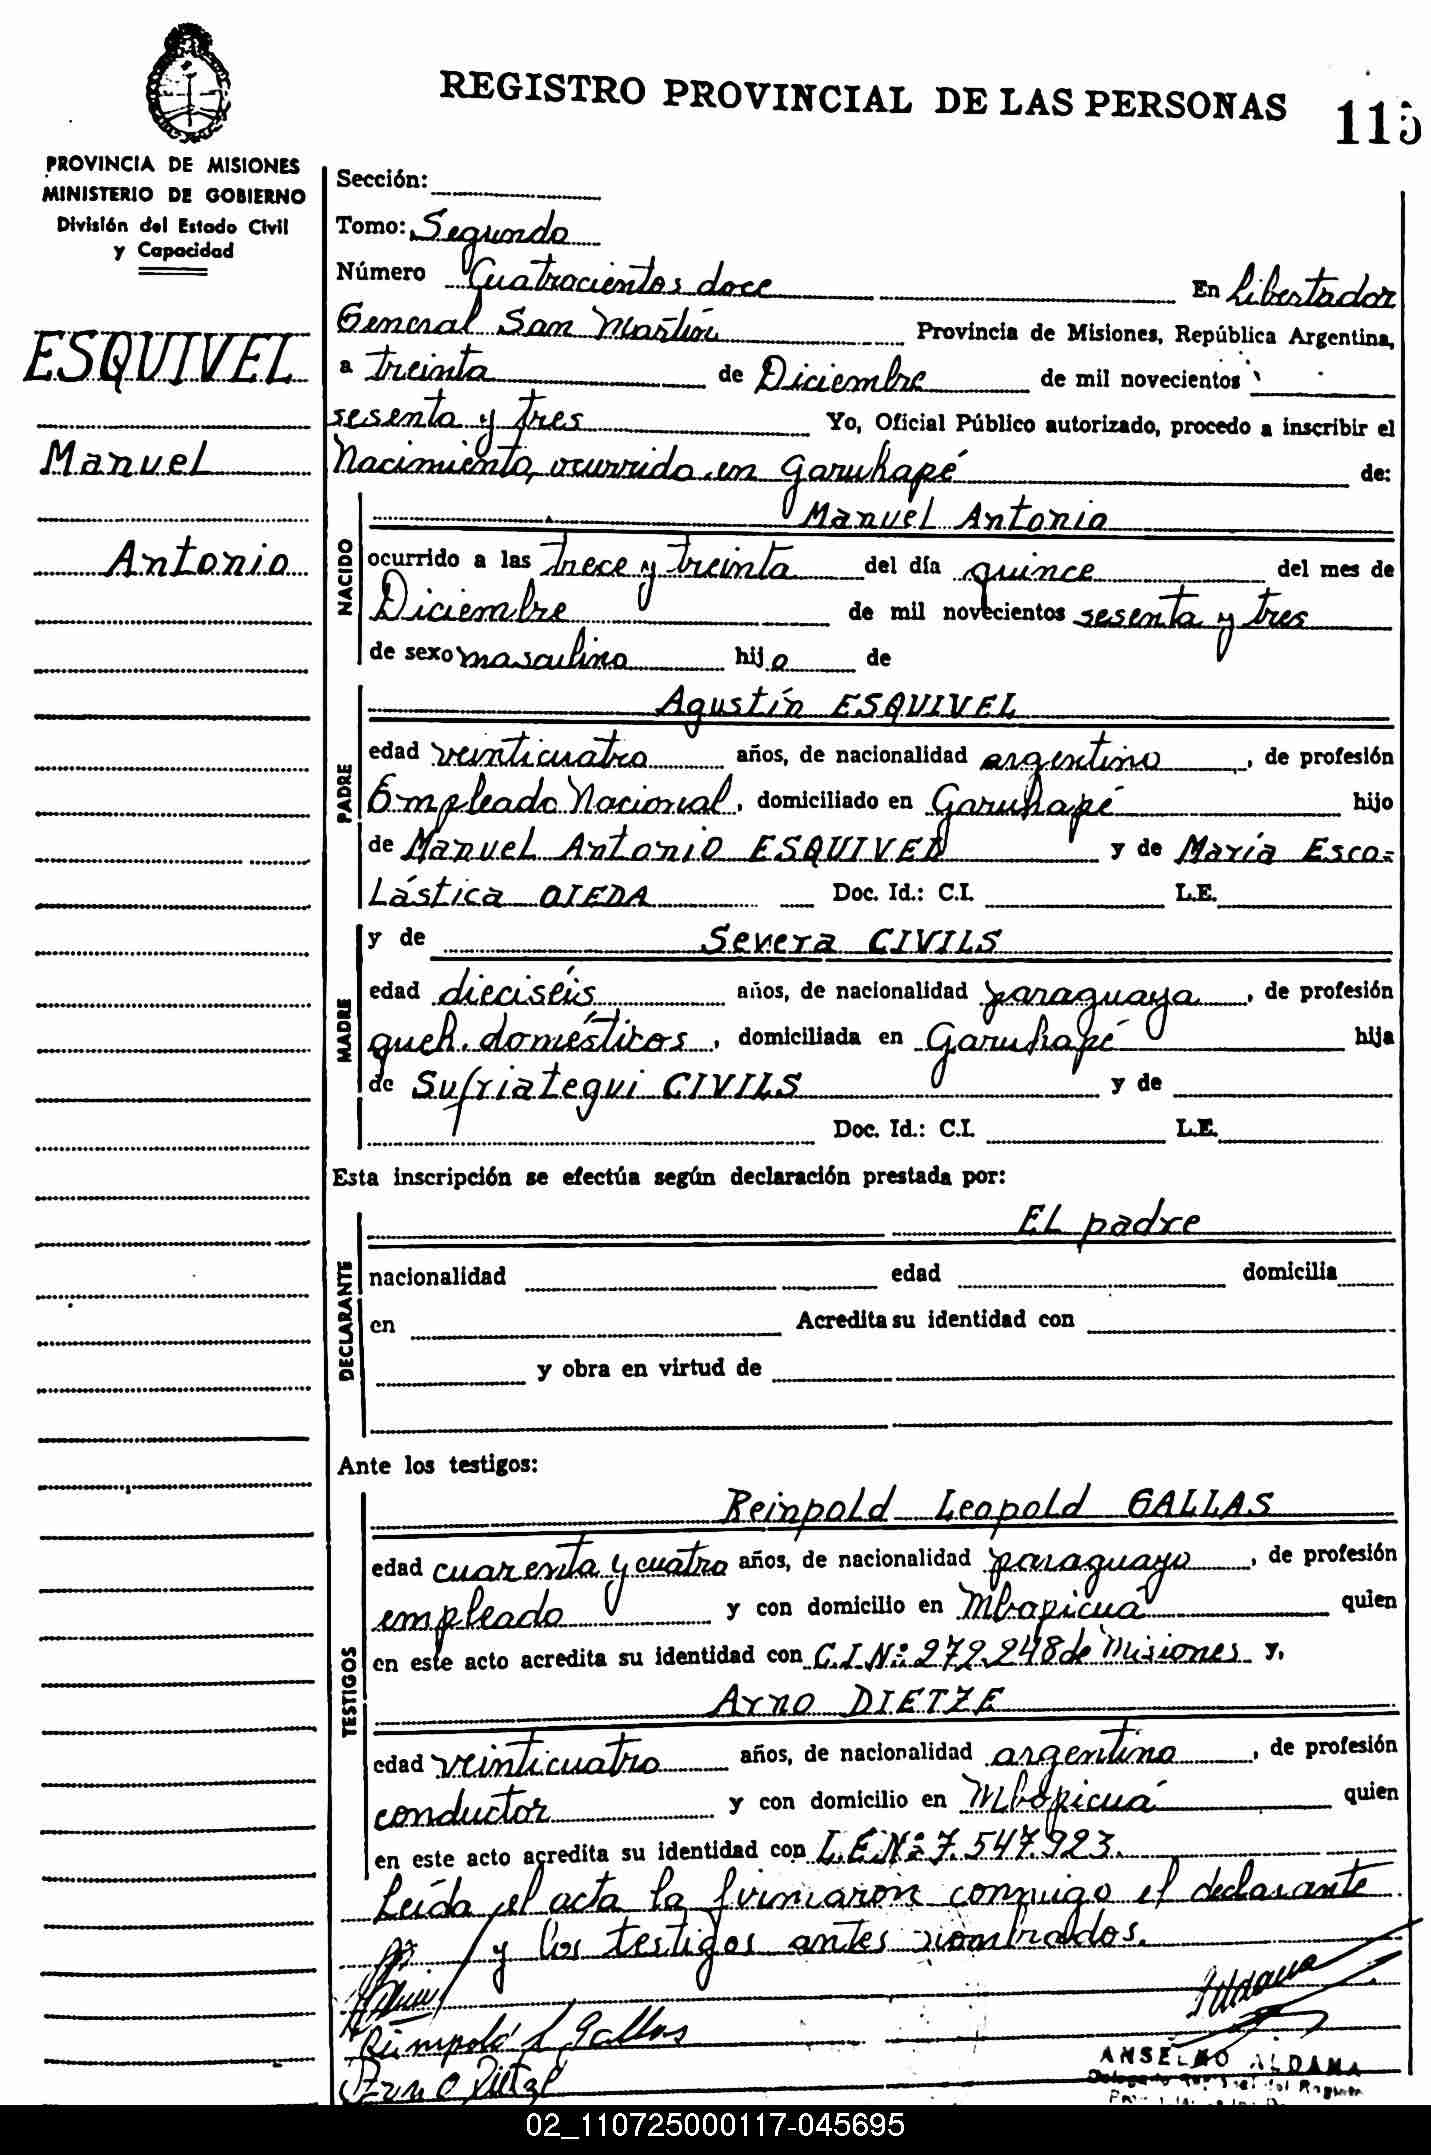 REGISTRO PROVINCIAL DE LAS PERSONAS
115
PROVINCIA DE MISIONES
MINISTERIO DE GOBIERNO
División del Estado Civil
y Capacidad
ESQUIVEL
Manuel
Antonio
Sección:
Tomo: Segundo
Número Cuatrocientos doce En Libertador
General San Martín Provincia de Misiones, República Argentina,
a treinta de Diciembre de mil novecientos
sesenta y tres Yo, Oficial Público autorizado, procedo a inscribir el
Nacimiento, ocurrido en Garuhapé de:
NACIDO
Manuel Antonio
ocurrido a las trece y treinta del día quince del mes de
Diciembre de mil novecientos sesenta y tres
de sexo masculino hijo de
PADRE
Agustín ESQUIVEL
edad veinticuatro años, de nacionalidad argentino, de profesión
Empleado Nacional, domiciliado en Garuhapé hijo
de Manuel Antonio ESQUIVEL y de María Esco=
Lástica OJEDA Doc. Id.: C.I. L.E.
MADRE
y de Severa CIVILS
edad dieciséis años, de nacionalidad paraguaya, de profesión
queh. domésticos, domiciliada en Garuhapé hija
de Sufriategui CIVILS y de
Doc. Id.: C.I. L.E.
Esta inscripción se efectúa según declaración prestada por:
DECLARANTE
EL padre
nacionalidad edad domicilia
en Acredita su identidad con
y obra en virtud de
Ante los testigos:
TESTIGOS
Reinpold Leopold GALLAS
edad cuarenta y cuatro años, de nacionalidad paraguayo, de profesión
empleado y con domicilio en Mbopicuá quien
en este acto acredita su identidad con C.I.Nº 272.248 de Misiones y,
Arno DIETZE
edad veinticuatro años, de nacionalidad argentino, de profesión
conductor y con domicilio en Mbopicuá quien
en este acto acredita su identidad con L.E.Nº 7.547.923.
Leída el acta la firmaron conmigo el declarante
y los testigos antes nombrados.
Aldana
Reimpold L Gallas
Arno Dietze
ANSELMO ALDANA
02_110725000117-045695